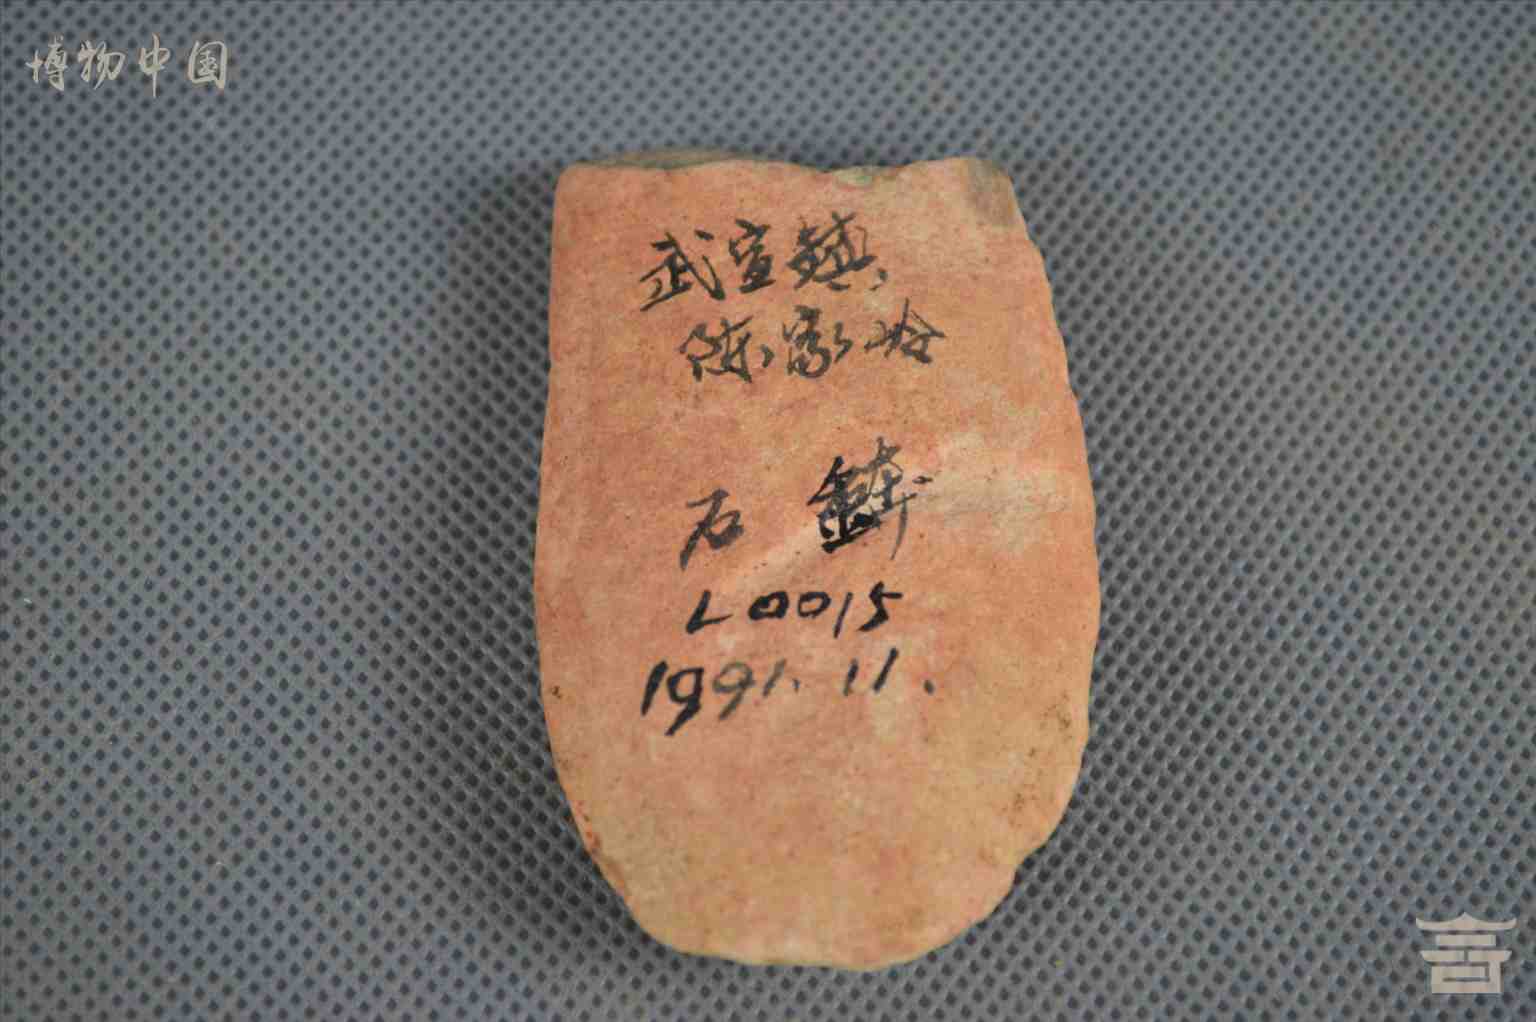 博物中国
武宣镇
陈家岭
石锛
L0015
1991.11.